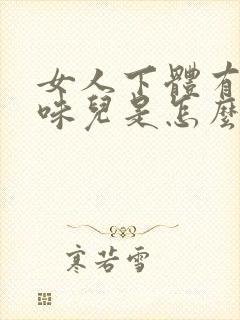 女人下體有
味兒是怎麼
寒若雪